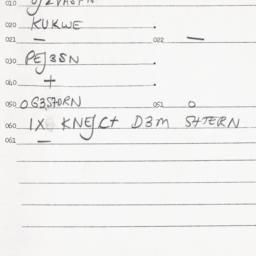 020 KUKWE .
021 — 022 —
030 PEJ3SN .
040 + .
050 OG3STORN 051 O
060 IX KNEJCT D3M STTERN
061 —